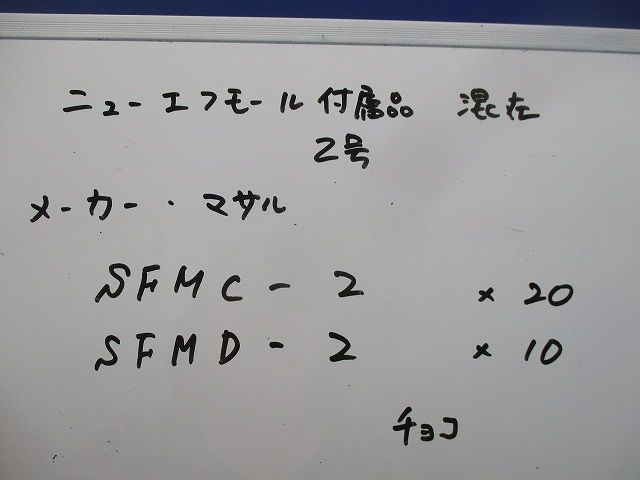 ニューエフモール 付属品 混在
2号
メーカー・マサル
SFMC-2 × 20
SFMD-2 × 10
チョコ